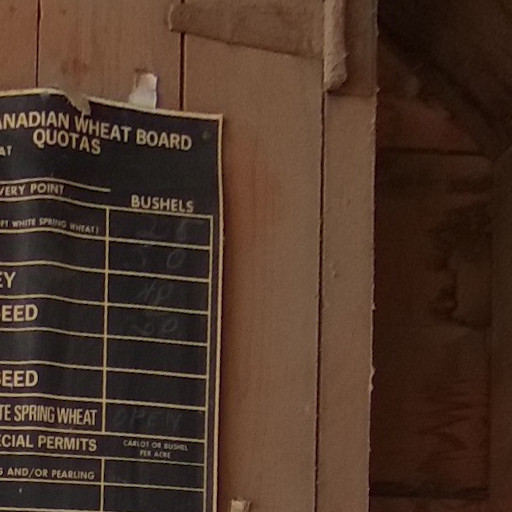 ANADIAN WHEAT BOARD
QUOTAS
AT
VERY POINT
BUSHELS
PT WHITE SPRING WHEAT)
EY
40
EED
EED
TE SPRING WHEAT OPEN
CIAL PERMITS CARLOT OR BUSHEL
PER ACRE
G AND/OR PEARLING